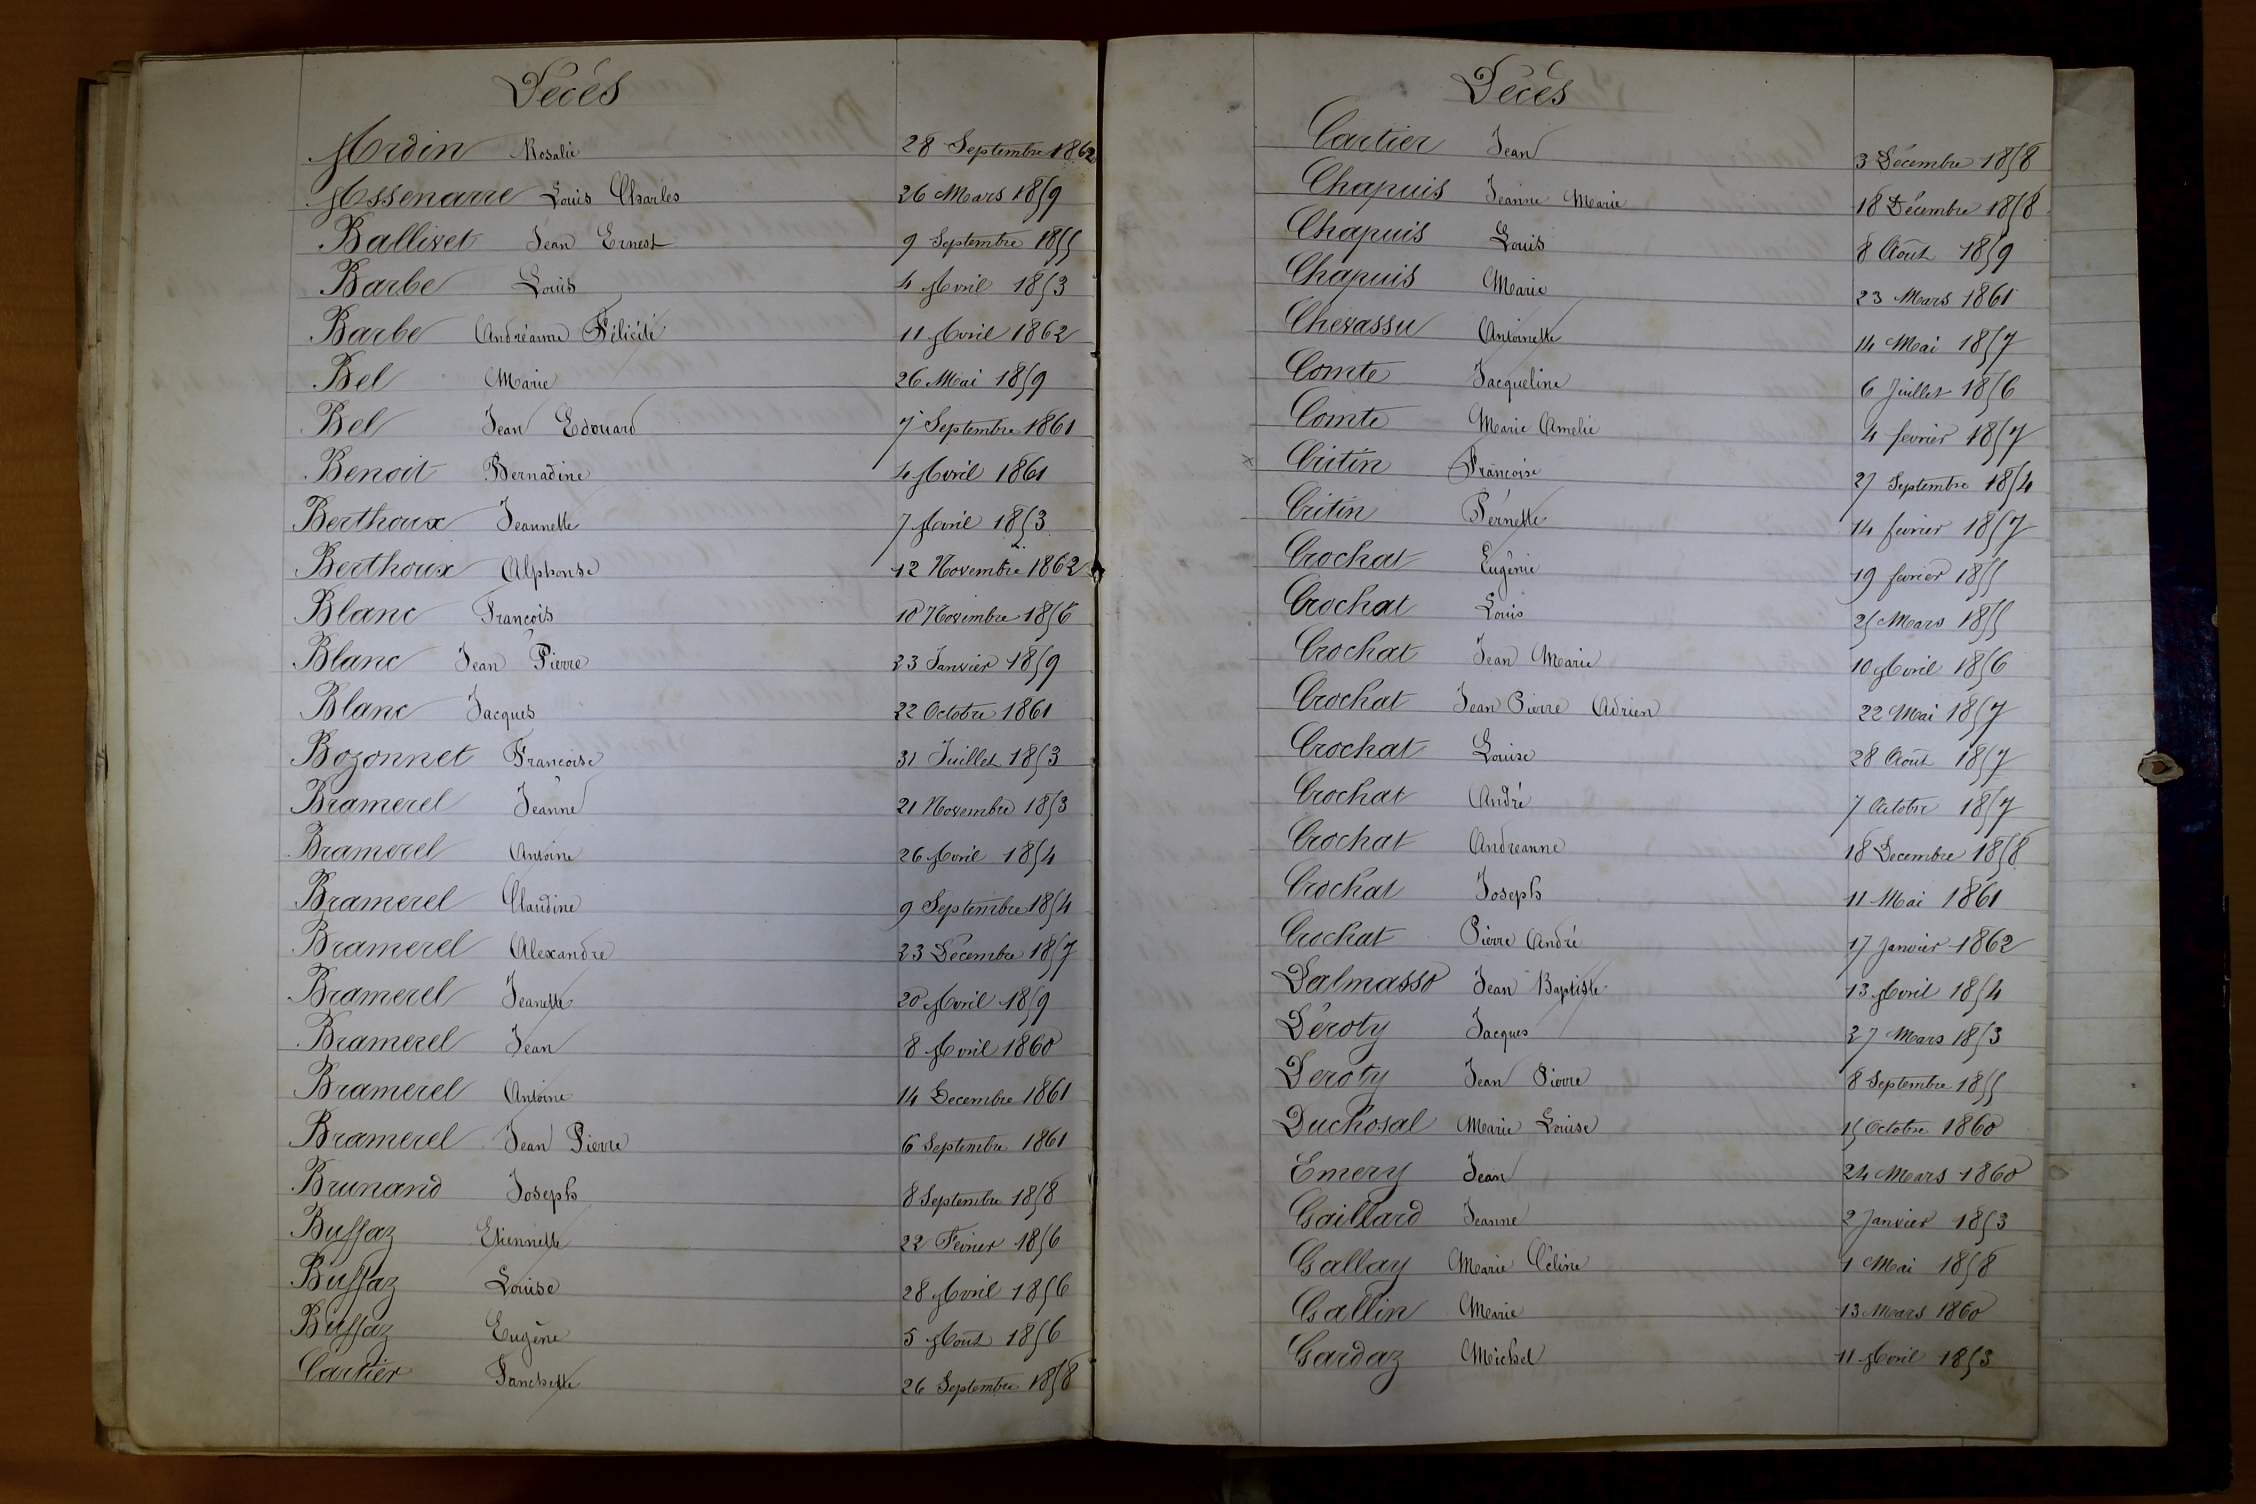 Décés
Ardin Rosalie 28 Septembre 1862
Assenarre Louis Charles 26 Mars 1859
Ballivet Jean Ernest 9 Septembre 1855
Barbe Louis 4 Avril 1853
Barbe Andréanne Félicité 11 Avril 1862
Bel Marie 26 Mai 1859
Bel Jean Edouard 7 Septembre 1861
Benoit Bernadine 4 Avril 1861
Berthoux Jeannette 7 Avril 1853
Berthoux Alphonse 12 Novembre 1862
Blanc François 10 Novembre 1856
Blanc Jean Pierre 23 Janvier 1859
Blanc Jacques 22 Octobre 1861
Bozonnet Francoise 31 Juillet 1853
Bramerel Jeanne 21 Novembre 1853
Bramerel Antoine 26 Avril 1854
Bramerel Claudine 9 Septembre 1854
Bramerel Alexandre 23 Décembre 1857
Bramerel Jeanette 20 Avril 1859
Bramerel Jean 8 Avril 1860
Bramerel Antoine 14 Decembre 1861
Bramerel Jean Pierre 6 Septembre 1861
Brunand Joseph 8 Septembre 1858
Buffaz Etiennette 22 Février 1856
Buffaz Louise 28 Avril 1856
Buffaz Eugène 5 Août 1856
Cartier Fanchette 26 Septembre 1858
Décès
Cartier Jean 3 Décembre 1858
Chapuis Jeanne Marie 18 Décembre 1858
Chapuis Louis 8 Août 1859
Chapuis Marie 23 Mars 1861
Chevassu Antoinette 14 Mai 1857
Comte Jacqueline 6 Juillet 1856
Comte Marie Amelie 4 fevrier 1857
Critin Francoise 27 Septembre 1854
Critin Pernette 14 fevrier 1857
Crochat Eugénie 19 fevrier 1855
Crochat Louis 25 Mars 1855
Crochat Jean Marie 10 Avril 1856
Crochat Jean Pierre Adrien 22 Mai 1857
Crochat Louise 28 Août 1857
Crochat André 7 Octobre 1857
Crochat Andreanne 18 Decembre 1858
Crochat Joseph 11 Mai 1861
Crochat Pierre André 17 Janvier 1862
Dalmasso Jean Baptiste 13 Avril 1854
Déroty Jacques 27 Mars 1853
Deroty Jean Pierre 8 Septembre 1855
Duchosal Marie Louise 15 Octobre 1860
Emery Jean 24 Mars 1860
Gaillard Jeanne 2 Janvier 1853
Gallay Marie Céline 1 Mai 1858
Gallin Marie 13 Mars 1860
Gardaz Michel 11 Avril 1853